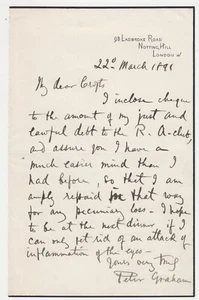 98 LADBROKE ROAD
NOTTING HILL
LONDON W
22nd March 1891
My dear Crofts
I inclose cheque
to the amount of my just and
lawful debt to the R. A. club,
and assure you I have a
much easier mind than I
had before, so that I am
amply repaid in that way
for any pecuniary loss - I hope
to be at the next dinner if I
can only get rid of an attack of
inflammation of the eyes -
Yours very truly
Peter Graham